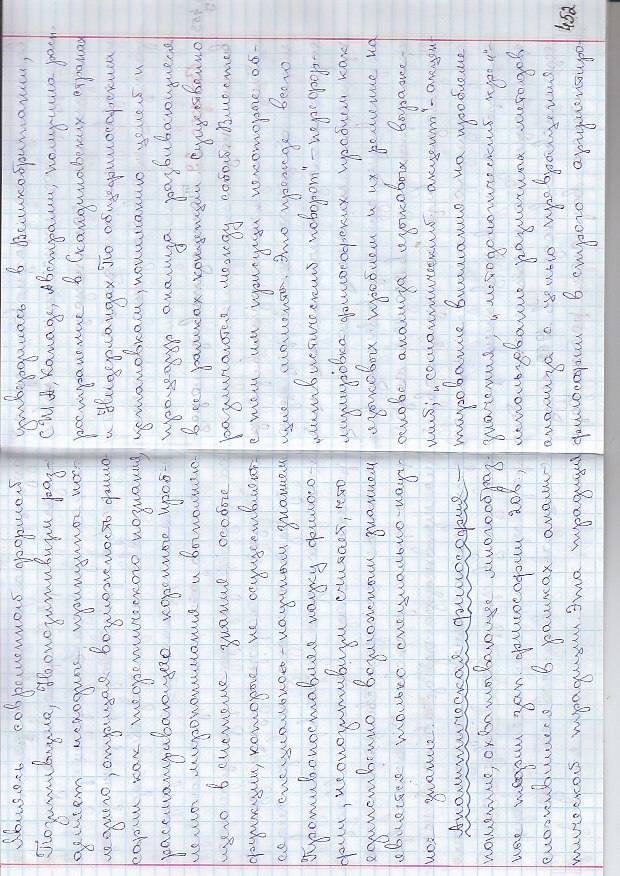 являясь современной формой
Позитивизма, Неопозитивизм раз-
деляет исходные принципы пос-
леднего, отрицая возможность фило
софии как теоретического познания,
рассматривающего коренные проб-
лемы миропонимания и выполняю-
щего в системе знания особые
функции, которые не осуществляют-
ся специально-научным знанием
Противопоставляя науку филосо-
фии, неопозитивизм считает, что
единственно возможным знанием
является только специально-науч-
ное знание.
Аналитическая философия –
понятие, охватывающее многообраз-
ные теории зап философии 20в.,
сложившиеся в рамках анали-
тической традиции. Эта традиция
утвердилась в Великобритании,
США, Канаде, Австралии, получила расп-
ространение в Скандинавских странах
и Нидерландах. По общефилософским
установкам, пониманию целей и
процедур анализа развивающиеся
в ее рамках концепции существенно
различаются между собой. Вместе
с тем им присущи некоторые об-
щие моменты. Это прежде всего
"лингвистический поворот" – перефор-
мулировка философских проблем как
языковых проблем и их решение на
основе анализа языковых выраже-
ний; "семантический акцент" – акцен-
тирование внимания на проблеме
значения; "методологический курс" –
использование различных методов
анализа с целью превращения
философии в строго аргументиро
452